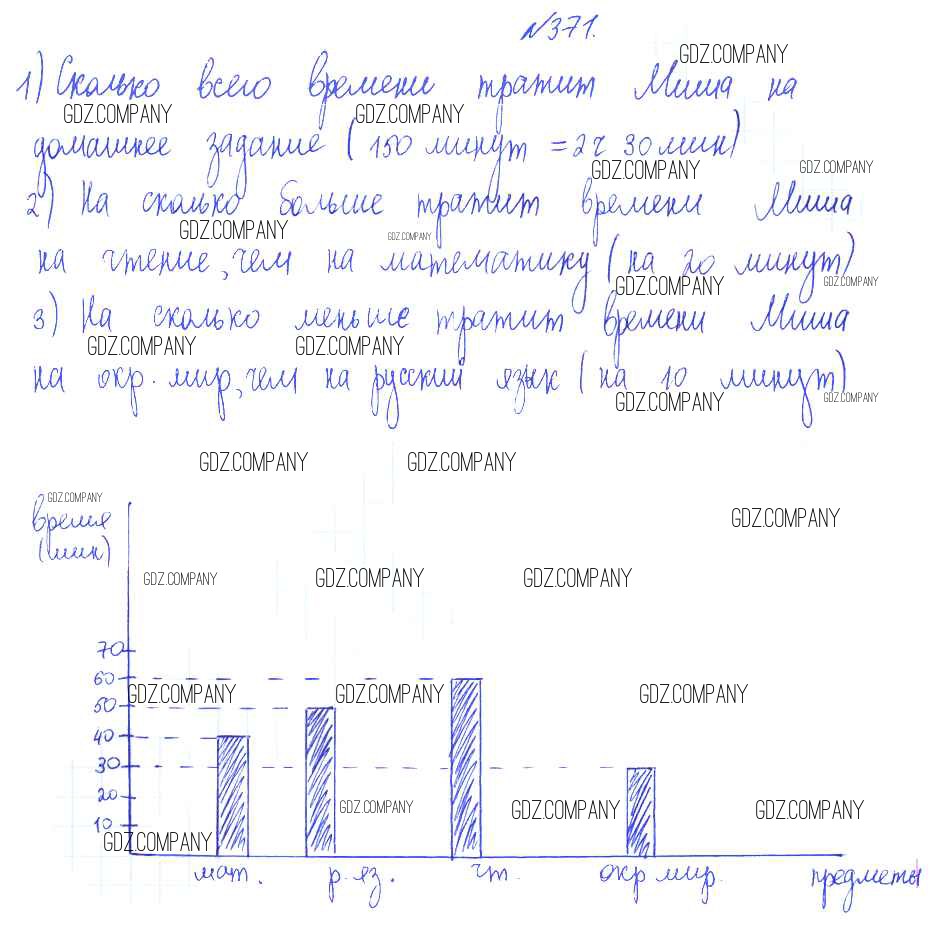 №371.
1) Сколько всего времени тратит Миша на
домашнее задание (150 минут = 2ч 30 мин)
2) На сколько больше тратит времени Миша
на чтение, чем на математику (на 20 минут)
3) На сколько меньше тратит времени Миша
на окр. мир, чем на русский язык (на 10 минут)
время
(мин)
70
60
50
40
30
20
10
мат. р. яз. чт. окр мир. предметы
GDZ.COMPANY
GDZ.COMPANY GDZ.COMPANY
GDZ.COMPANY GDZ.COMPANY
GDZ.COMPANY GDZ.COMPANY
GDZ.COMPANY GDZ.COMPANY
GDZ.COMPANY GDZ.COMPANY
GDZ.COMPANY GDZ.COMPANY
GDZ.COMPANY GDZ.COMPANY
GDZ.COMPANY GDZ.COMPANY
GDZ.COMPANY GDZ.COMPANY GDZ.COMPANY
GDZ.COMPANY GDZ.COMPANY GDZ.COMPANY
GDZ.COMPANY GDZ.COMPANY GDZ.COMPANY
GDZ.COMPANY